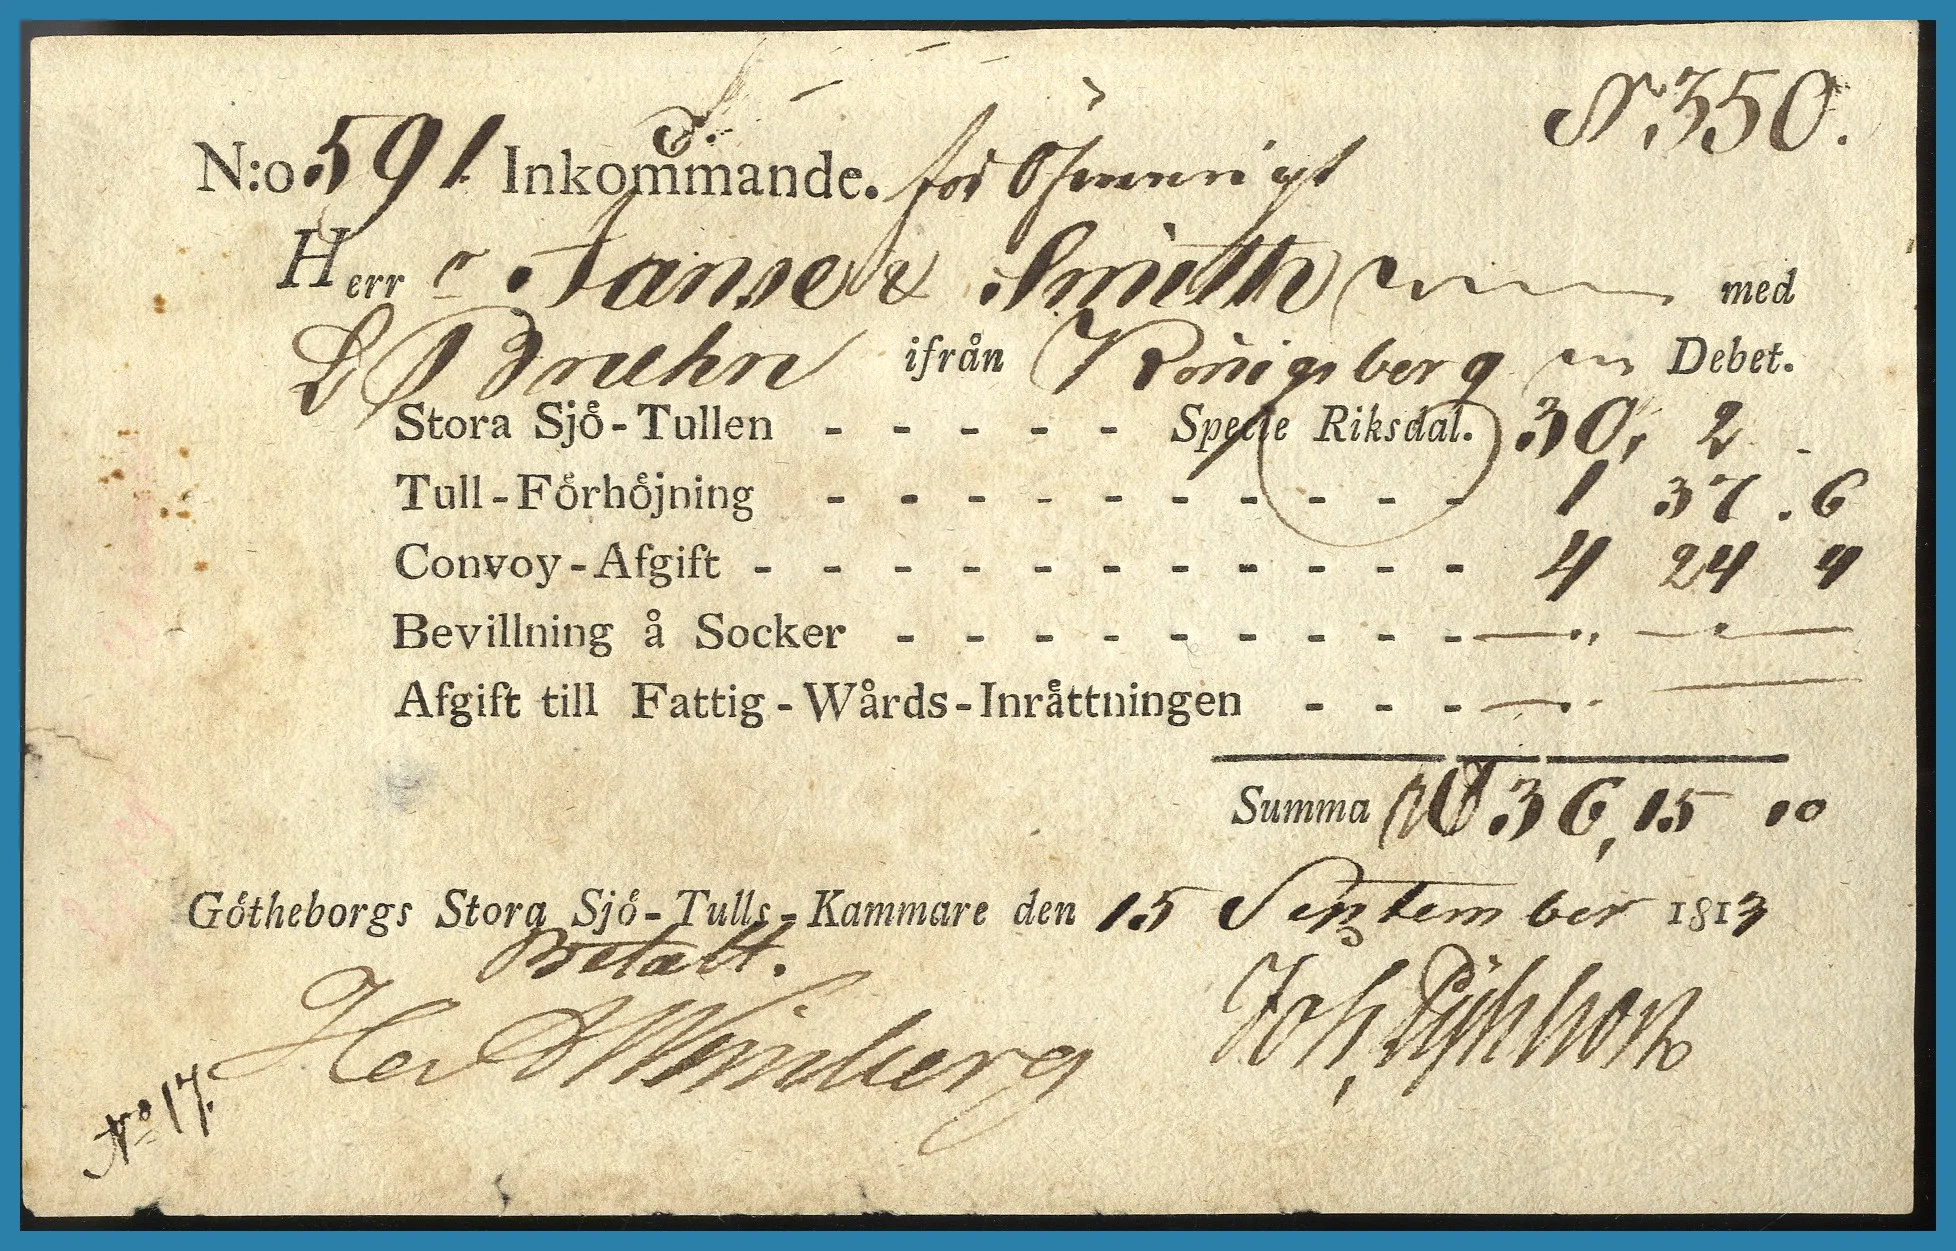 N:o 591. Inkommande. för
Nr. 350.
Herr r Janse & Smith med
L Bruhn ifrån Königsberg Debet.
Stora Sjö-Tullen - - - - - Specie Riksdal. 30, 2 -
Tull-Förhöjning - - - - - - - - - - 1 37. 6
Convoy-Afgift - - - - - - - - - - - 4 24 4
Bevillning å Socker - - - - - - - - -
Afgift till Fattig-Wårds-Inråttningen - - -
Summa 36, 15 10
Götheborgs Stora Sjö-Tulls-Kammare den 15 September 1813
Betalt.
Joh.
No 17.